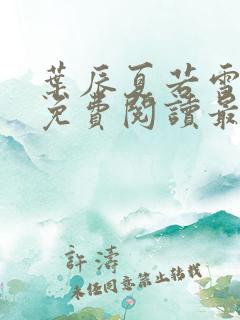 葉辰夏若雪
免費閱讀最
許濤
未經同意禁止轉載